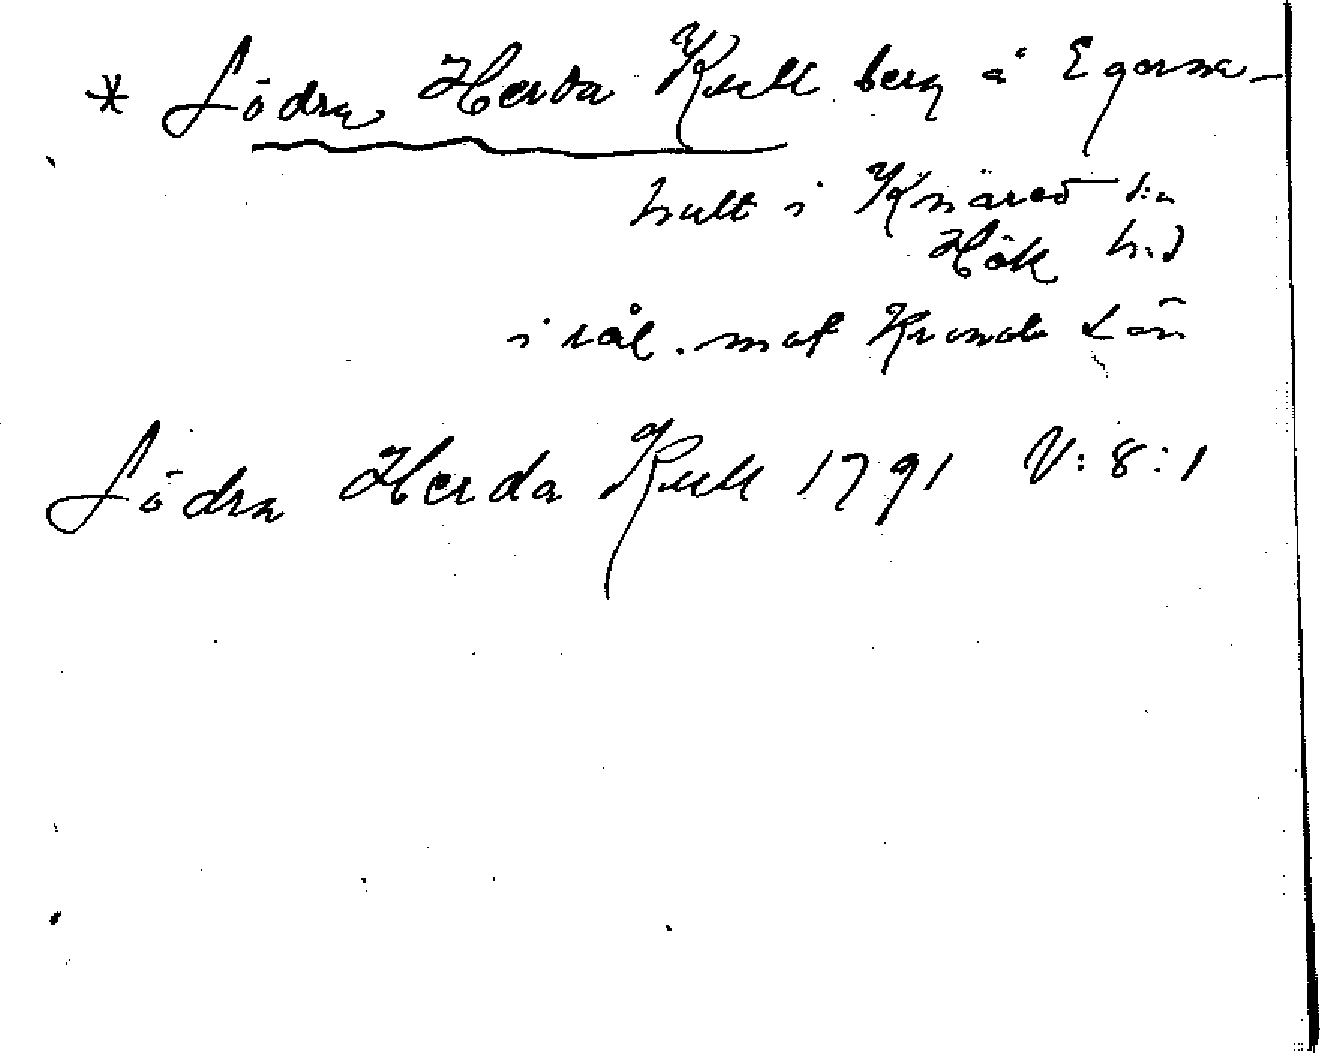 * Södra Herda Kull berg å Egorna-
hult i Knäred s:n
Hök h:d
i rål. mot Kronob Län
Södra Herda Kull 1791 V:8:1